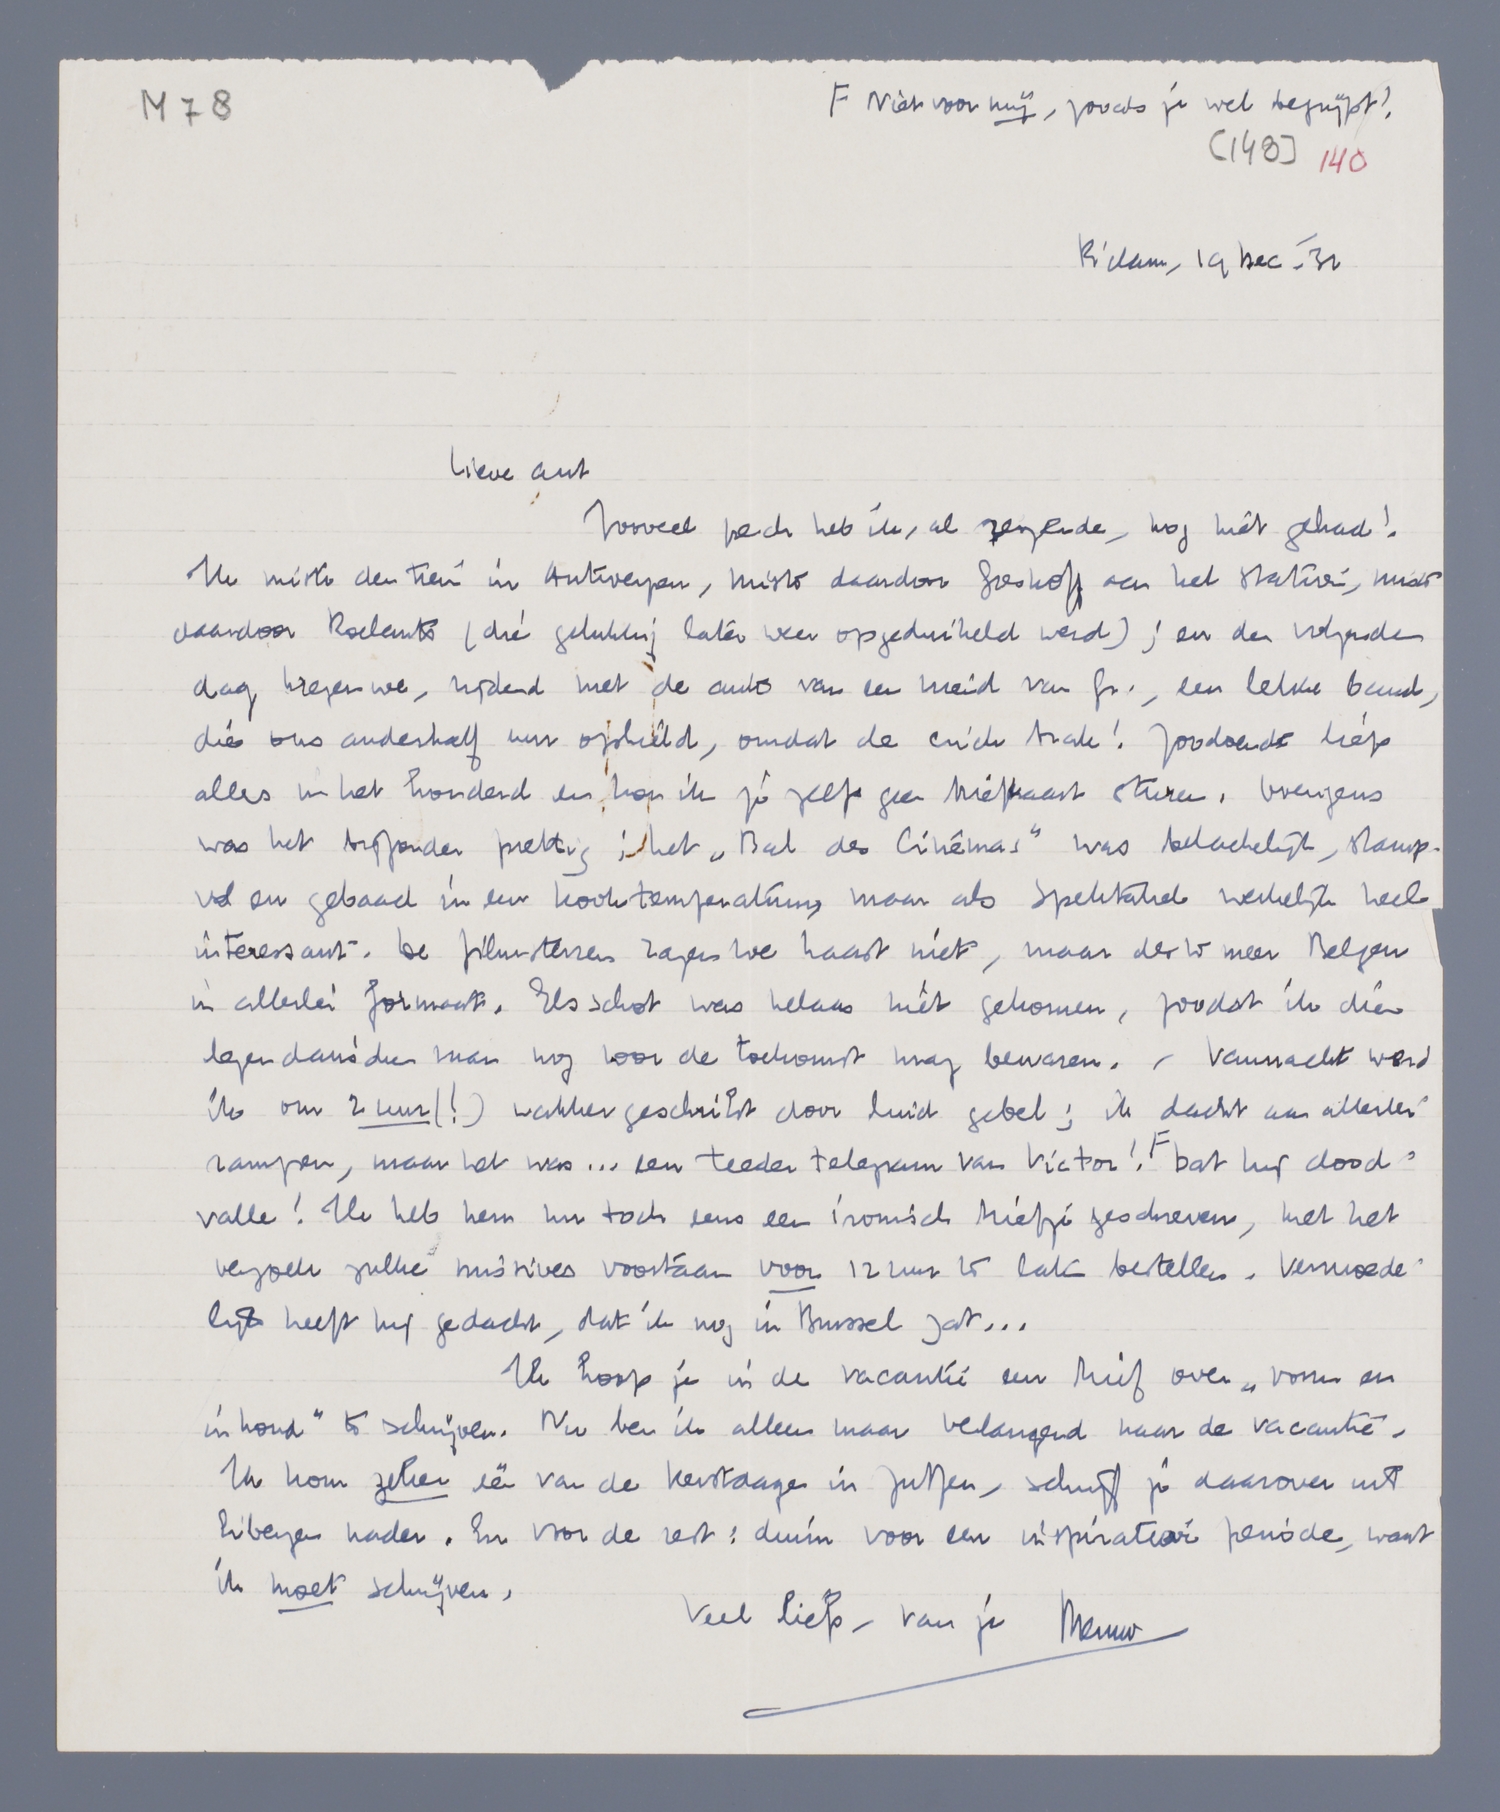 M 78
F Niet voor mij, zooals je wel begrijpt!
[148] 140
R'dam, 19 Dec. '32
Lieve Ant
Zooveel pech heb ik, al reizende, nog niet gehad!
Ik miste den trein in Antwerpen, miste daardoor Greshoff aan het station, miste
daardoor Roelants (die gelukkig later weer opgeduikeld werd); en den volgenden
dag kregen we, rijdend met de auto van een meid van Gr., een lekke band,
die ons anderhalf uur ophield, omdat de crick brak! Zoodoende liep
alles in het honderd en kon ik je zelfs geen briefkaart sturen. Overigens
was het bijzonder prettig; het „Bal des Cinémas" was belachelijk, stamp-
vol en gebaad in een kooktemperatuur, maar als spektakel werkelijk heel
interessant. De filmsterren zagen we haast niet, maar des te meer Belgen
in allerlei formaat. Elsschot was helaas niet gekomen, zoodat ik dien
legendarischen man nog voor de toekomst mag bewaren. – Vannacht werd
ik om 2 uur (!) wakker geschrikt door luid gebel; ik dacht aan allerlei
rampen, maar het was... een teeder telegram van Victor! F Dat hij dood-
valle! Ik heb hem nu toch eens een ironisch briefje geschreven, met het
verzoek zulke missives voortaan voor 12 uur te laten bestellen. Vermoede-
lijk heeft hij gedacht, dat ik nog in Brussel zat...
Ik hoop je in de vacantie een brief over „vorm en
inhoud" te schrijven. Nu ben ik alleen maar verlangend naar de vacantie.
Ik kom zeker één van de Kerstdagen in Zutfen, schrijf je daarover uit
Eibergen nader. En voor de rest: duim voor een inspiratieve periode, want
ik moet schrijven.
Veel liefs, van je Menno